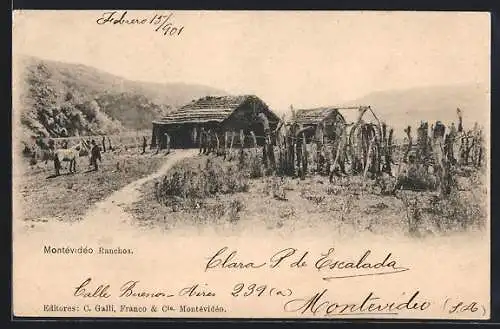 Febrero 15/901
Montévidéo Ranchos.
Clara P de Escalada
Calle Buenos-Aires 239(a)
Montevideo (S.A)
Editores: C. Galli, Franco & Cia. Montévidéo.